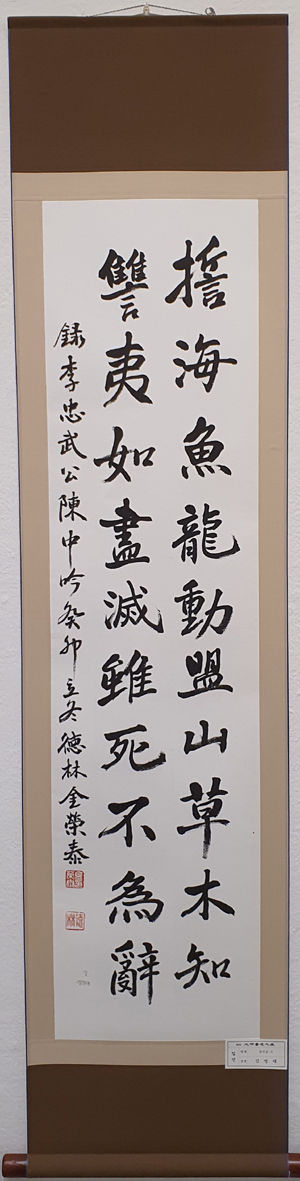 誓海魚龍動盟山草木知
讐夷如盡滅雖死不為辭
錄李忠武公陳中吟癸卯立冬德林金榮泰